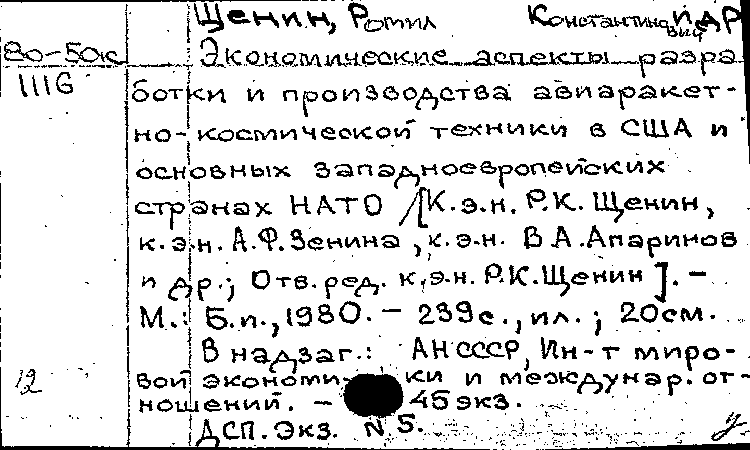 Щенин, Ромил Константинович и др
80-50к Экономические аспекты разра
1116 ботки и производства авиаракет-
но-космической техники в США и
основных западноевропейских
странах НАТО /[К.э.н. Р.К. Щенин,
к.э.н. А.Ф. Зенина, к.э.н. В А. Апаринов
и др.; Отв. ред. к.э.н. Р.К. Щенин]. –
М.: Б.и., 1980. – 239 с., ил.; 20 см.
В надзаг.: АН СССР, Ин-т миро-
12 вой экономики и междунар. от-
ношений. – 45 экз.
ДСП. Экз. N 5.